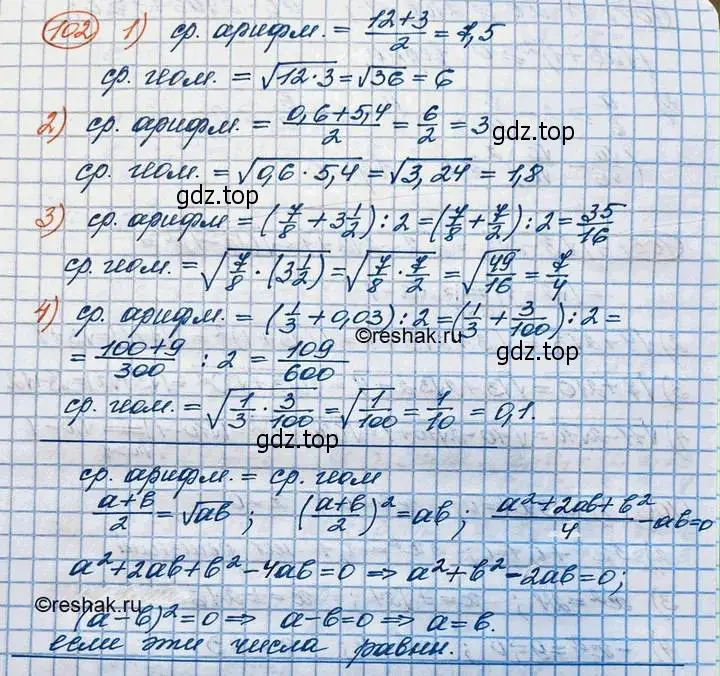 102 1) ср. арифм. = (12+3)/2 = 7,5
ср. геом. = √(12·3) = √36 = 6
2) ср. арифм. = (0,6+5,4)/2 = 6/2 = 3
gdz.top
ср. геом. = √(0,6·5,4) = √3,24 = 1,8
gdz.top
3) ср. арифм = (7/8 + 3 1/2) : 2 = (7/8 + 7/2) : 2 = 35/16
ср. геом. = √(7/8 · (3 1/2)) = √(7/8 · 7/2) = √(49/16) = 7/4
4) ср. арифм. = (1/3 + 0,03) : 2 = (1/3 + 3/100) : 2 =
©reshak.ru
= (100+9)/300 : 2 = 109/600
gdz.top
ср. геом. = √(1/3 · 3/100) = √(1/100) = 1/10 = 0,1.
gdz.top
ср. арифм. = ср. геом
(a+b)/2 = √ab ; ((a+b)/2)² = ab ; (a²+2ab+b²)/4 - ab = 0
a²+2ab+b²-4ab=0 ⇒ a²+b²-2ab=0;
©reshak.ru
(a-b)²=0 ⇒ a-b=0 ⇒ a=b.
если эти числа равны.